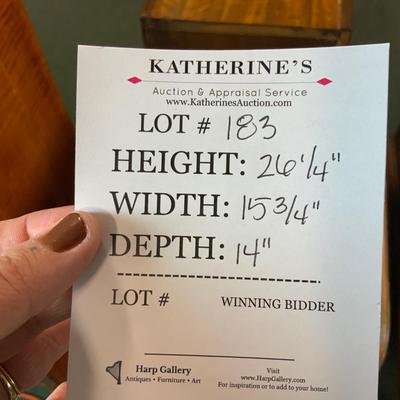 KATHERINE'S
Auction & Appraisal Service
www.KatherinesAuction.com
LOT # 183
HEIGHT: 26 1/4"
WIDTH: 15 3/4"
DEPTH: 14"
LOT # WINNING BIDDER
Harp Gallery
Antiques • Furniture • Art
Visit
www.HarpGallery.com
For inspiration or to add to your home!